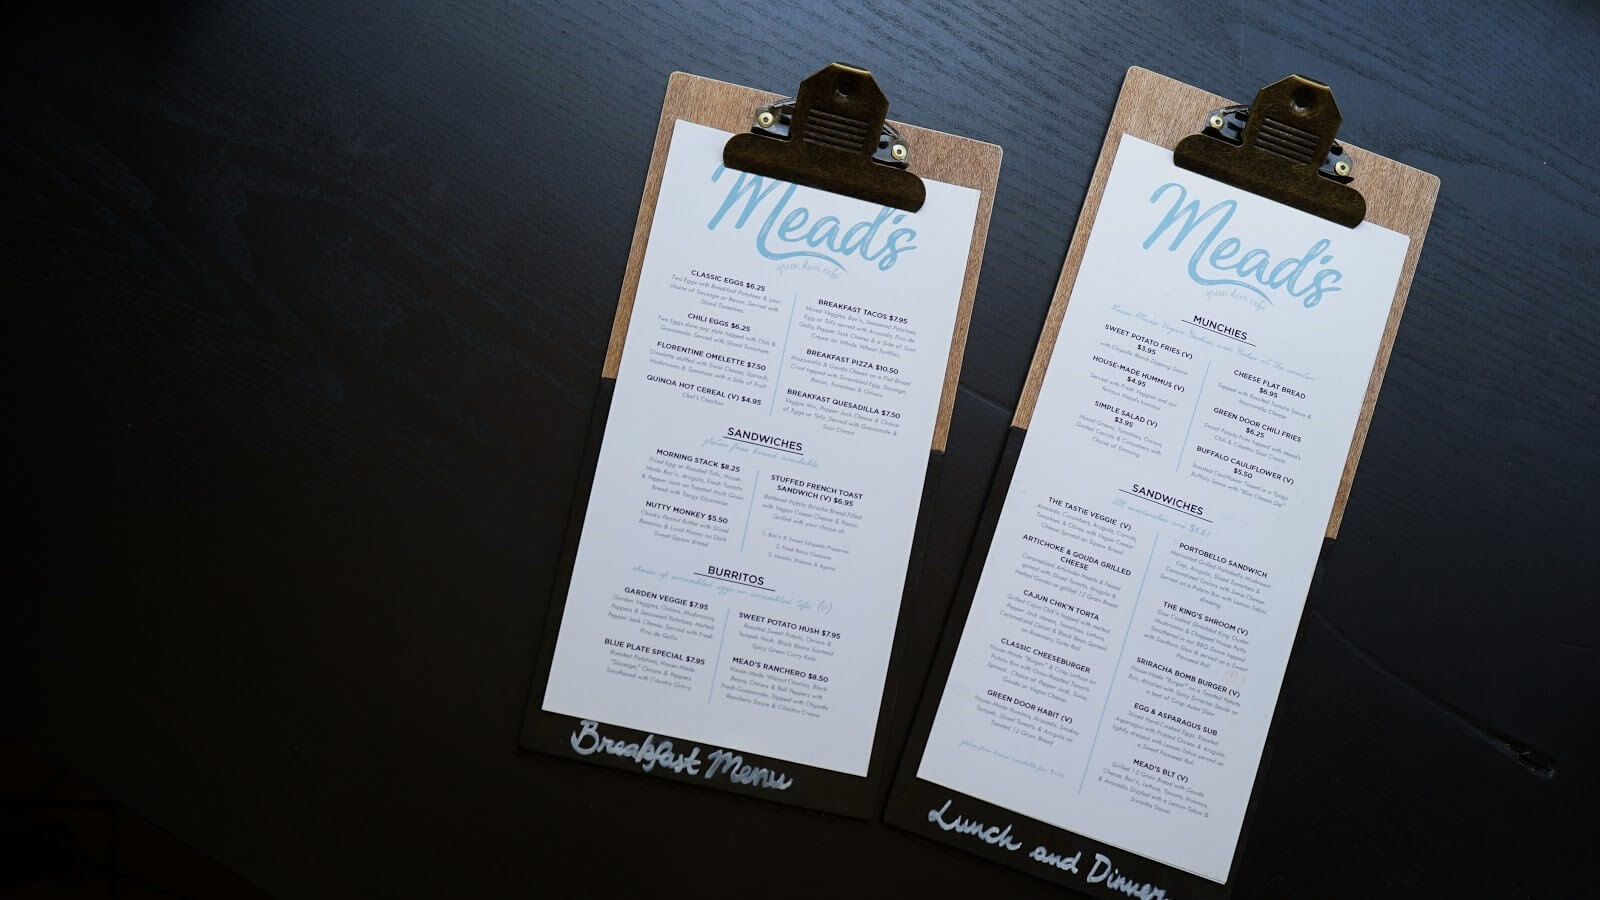 Mead's
green door café
CLASSIC EGGS $6.25
Two Eggs with Breakfast Potatoes & your
choice of Sausage or Bacon. Served with
Sliced Tomatoes.
CHILI EGGS $6.25
Two Eggs done any style topped with Chili &
Guacamole. Served with Sliced Tomatoes.
FLORENTINE OMELETTE $7.50
Omelette stuffed with Swiss Cheese, Spinach,
Mushrooms & Tomatoes with a Side of Fruit
QUINOA HOT CEREAL (V) $4.95
Chef's Creation
BREAKFAST TACOS $7.95
Mixed Veggies, Bac'n, Seasoned Potatoes,
Egg or Tofu served with Avocado, Pico de
Gallo, Pepper Jack Cheese & a Side of Sour
Cream on Whole Wheat Tortillas.
BREAKFAST PIZZA $10.50
Mozzarella & Gouda Cheese on a Flat Bread
Crust topped with Scrambled Egg, Sausage,
Bacon, Tomatoes & Onions.
BREAKFAST QUESADILLA $7.50
Veggie Mix, Pepper Jack Cheese & Choice
of Eggs or Tofu. Served with Guacamole &
Sour Cream
SANDWICHES
gluten free bread available
MORNING STACK $8.25
Fried Egg or Roasted Tofu, House-
Made Bac'n, Arugula, Fresh Tomato
& Pepper Jack on Toasted Multi Grain
Bread with Tangy Dijonnaise.
NUTTY MONKEY $5.50
Chunky Peanut Butter with Sliced
Bananas & Local Honey on Dark
Sweet Squaw Bread
STUFFED FRENCH TOAST
SANDWICH (V) $6.95
Battered Potato Brioche Bread Filled
with Vegan Cream Cheese &
Grilled with your choice of:
1. Bac'n & Sweet Jalapeño Preserves
2. Fresh Berry Compote
3. Nutella, Banana & Agave
BURRITOS
choice of scrambled eggs or scrambled tofu (V)
GARDEN VEGGIE $7.95
Garden Veggies, Onions, Mushrooms,
Peppers & Seasoned Potatoes, Melted
Pepper Jack Cheese. Served with Fresh
Pico de Gallo
BLUE PLATE SPECIAL $7.95
Roasted Potatoes, House-Made
"Sausage," Onions & Peppers
Smothered with Country Gravy
SWEET POTATO HUSH $7.95
Roasted Sweet Potato, Onions &
Tempeh Hash, Black Beans Sauteed
Spicy Green Curry Kale
MEAD'S RANCHERO $8.50
House-Made Walnut Chorizo, Black
Beans, Onions & Bell Peppers with
Fresh Guacamole. Topped with Chipotle
Ranchero Sauce & Cilantro Cream
Breakfast Menu
Mead's
green door café
MUNCHIES
House-Made Vegan Pastries and Cakes at the counter!
SWEET POTATO FRIES (V)
$3.95
with Chipotle Ranch Dipping Sauce
HOUSE-MADE HUMMUS (V)
$4.95
Served with Fresh Veggies and our
Famous Mead's hummus
SIMPLE SALAD (V)
$3.95
Mixed Greens, Tomatoes, Onions,
Grated Carrots & Cucumbers with
Choice of Dressing
CHEESE FLAT BREAD
$6.95
Topped with Roasted Tomato Sauce &
Mozzarella Cheese
GREEN DOOR CHILI FRIES
$6.25
Sweet Potato Fries topped with Mead's
Chili & Cilantro Sour Cream
BUFFALO CAULIFLOWER (V)
$5.50
Roasted Cauliflower Tossed in a Tangy
Buffalo Sauce with "Blue Cheese Dip"
SANDWICHES
All sandwiches are
THE TASTIE VEGGIE (V)
Avocado, Cucumbers, Arugula, Carrots,
Tomatoes & Olives with Vegan Cream
Cheese Spread on Squaw Bread
ARTICHOKE & GOUDA GRILLED
CHEESE
Caramelized Artichoke Hearts & Fennel
spread with Sliced Tomato, Arugula &
Melted Gouda on grilled 12 Grain Bread
CAJUN CHIK'N TORTA
Grilled Cajun Chik'n topped with melted
Pepper Jack cheese, Tomatoes, Lettuce,
Caramelized Onion & Black Bean Spread
on Rosemary Torta Roll
CLASSIC CHEESEBURGER
House-Made "Burger" & Crisp Lettuce on
Potato Bun with Oven-Roasted Tomato
Spread. Choice of Pepper Jack, Swiss,
Gouda or Vegan Cheese.
GREEN DOOR HABIT (V)
House-Made Hummus, Avocado, Smokey
Tempeh, Sliced Tomato & Arugula on
Toasted 12 Grain Bread
gluten free bread available for
PORTOBELLO SANDWICH
Marinated Grilled Portobello Mushroom
Cap, Arugula, Sliced Tomatoes &
Caramelized Onions with Swiss Cheese.
Served on a Potato Bun with Lemon-Tahini
dressing
THE KING'S SHROOM (V)
Slow Cooked Shredded King Oyster
Mushrooms & Chopped House Patty
Smothered in our BBQ Sauce topped
with Southern Slaw & served on a Sweet
Flaxseed Roll
SRIRACHA BOMB BURGER (V)
House-Made "Burger" on a Toasted Potato
Bun, drizzled with Spicy Sriracha Sauce on
a bed of Crisp Asian Slaw
EGG & ASPARAGUS SUB
Sliced Hard-Cooked Eggs, Roasted
Asparagus with Pickled Onions & Arugula,
lightly dressed with Lemon-Tahini served on
a Sweet Flaxseed Roll
MEAD'S BLT (V)
Grilled 12 Grain Bread with Gouda
Cheese, Bac'n, Lettuce, Tomato, Hummus,
& Avocado. Dizzled with a Lemon-Tahini &
Sriracha Sauce
Lunch and Dinner